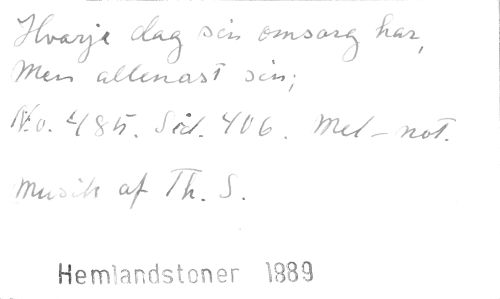 Hvarje dag sin omsorg har,
Men allenast sin;
No. 485. Sid. 406. Mel-not.
Musik af Th. S.
Hemlandstoner 1889